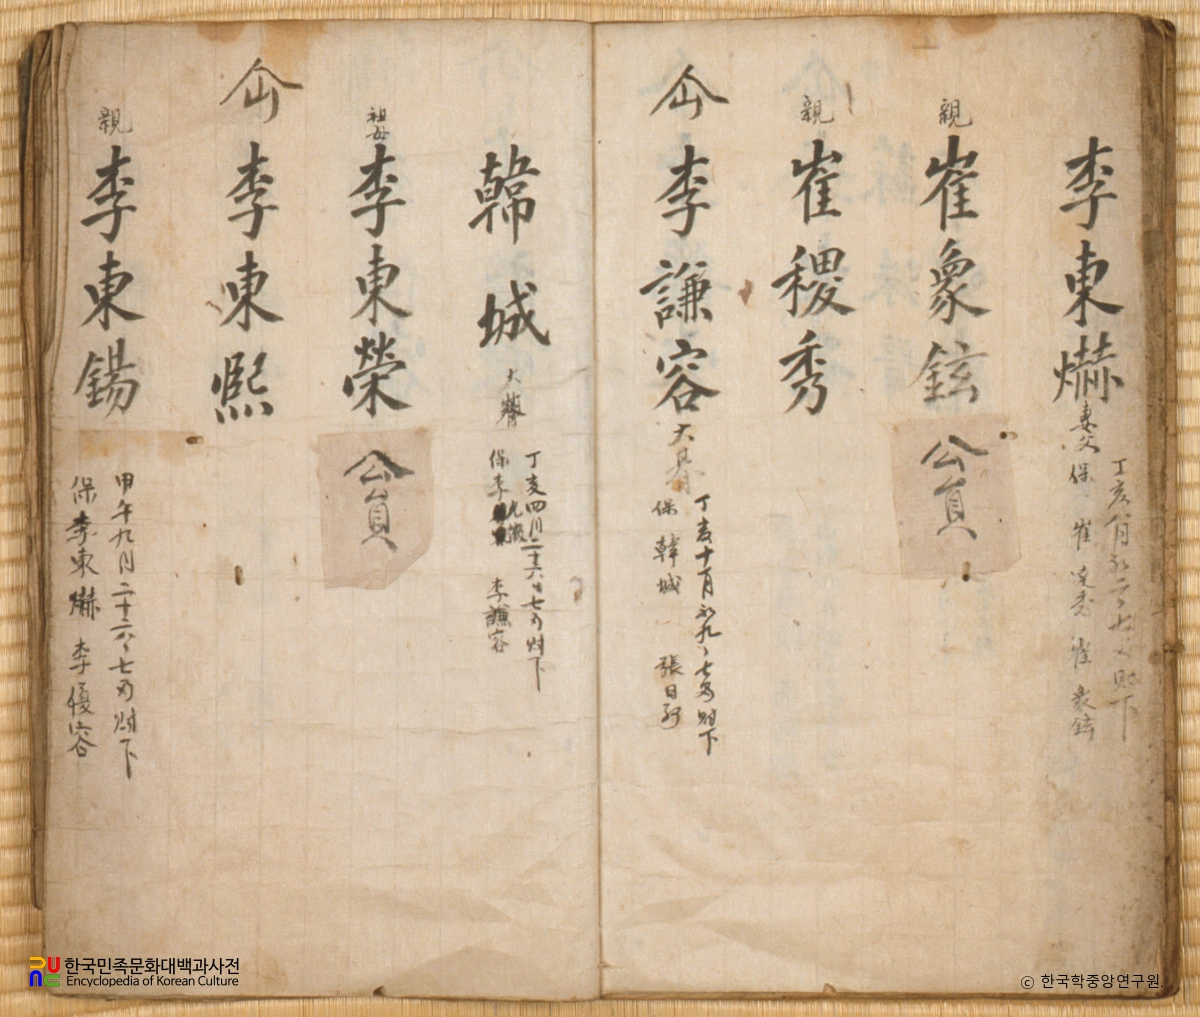 李東爀
妻父
丁亥
七
財下
保 崔 秀 崔象鉉
親
崔象鉉
公員
親
崔稷秀
仚
李謙容
大
丁亥十月初九日七 財下
保 韓城 張日
韓城
大
丁亥四月二十六日七 財下
保李 李謙容
祖母
李東榮
公員
仚
李東熙
親
李東錫
甲午九月二十六日七 財下
保李東爀 李優容
한국민족문화대백과사전
Encyclopedia of Korean Culture
ⓒ 한국학중앙연구원